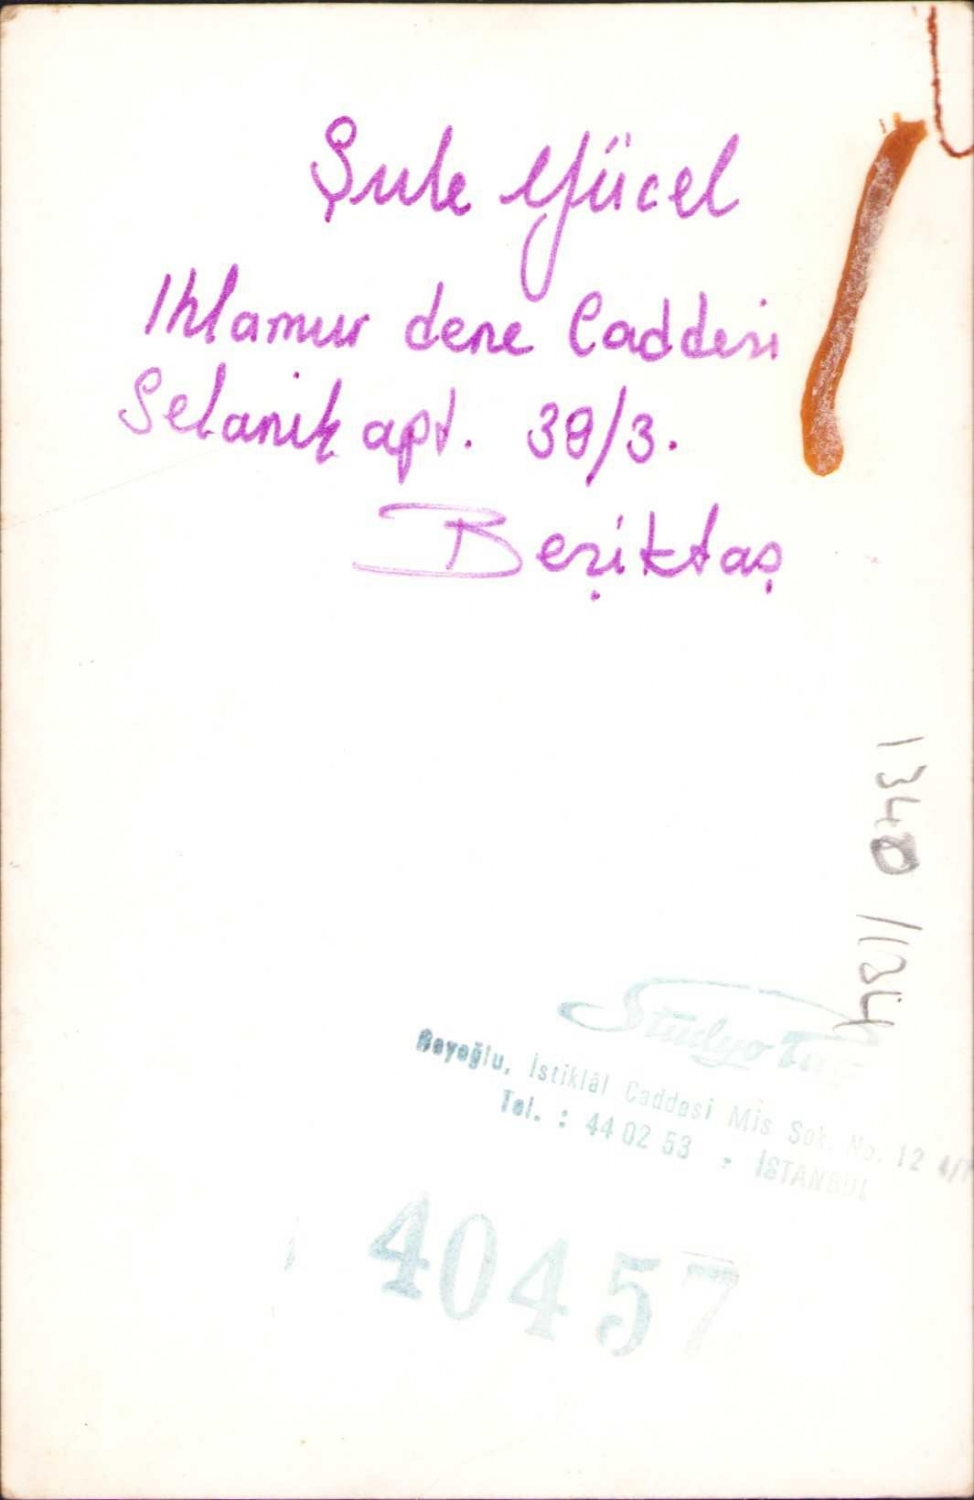 Şule Yücel
Ihlamur dere Caddesi
Selanik apt. 39/3.
Beşiktaş
1340 //134
Stüdyo
Beyoğlu, İstiklâl Caddesi Mis Sok. No. 12
Tel. : 44 02 53 - İSTANBUL
40457